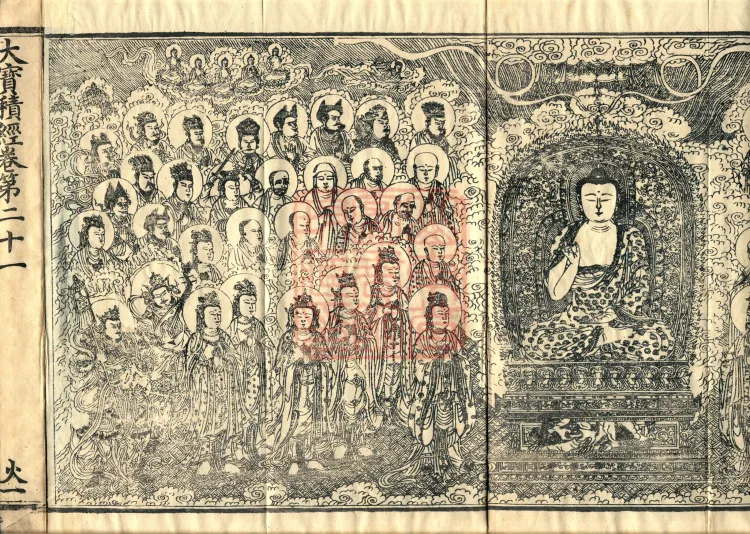 大寶積經卷第二十一
火一